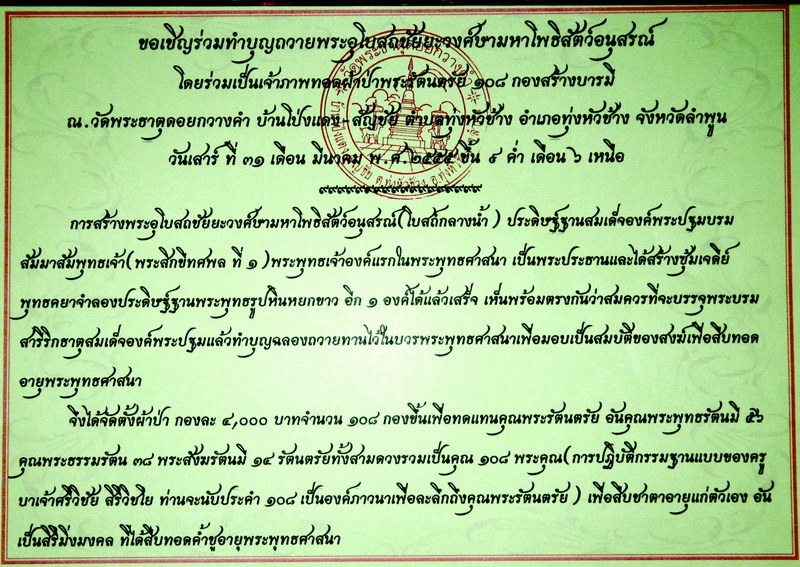 ขอเชิญร่วมทำบุญถวายพระอุโบสถชัยยะวงศ์ษามหาโพธิสัตว์อนุสรณ์
โดยร่วมเป็นเจ้าภาพทอดผ้าป่าพระรัตนตรัย ๑๐๘ กองสร้างบารมี
ณ.วัดพระธาตุดอยกวางคำ บ้านโป่งแดง-สัญชัย ตำบลทุ่งหัวช้าง อำเภอทุ่งหัวช้าง จังหวัดลำพูน
วันเสาร์ ที่ ๓๑ เดือน มีนาคม พ.ศ.๒๕๕๕ ขึ้น ๙ ค่ำ เดือน ๖ เหนือ
การสร้างพระอุโบสถชัยยะวงศ์ษามหาโพธิสัตว์อนุสรณ์(โบสถ์กลางน้ำ ) ประดิษฐ์ฐานสมเด็จองค์พระปฐมบรม
สัมมาสัมพุทธเจ้า(พระสิกขีทศพล ที่ ๑ )พระพุทธเจ้าองค์แรกในพระพุทธศาสนา เป็นพระประธานและได้สร้างซุ้มเจดีย์
พุทธคยาจำลองประดิษฐ์ฐานพระพุทธรูปหินหยกขาว อีก ๑ องค์ได้แล้วเสร็จ เห็นพร้อมตรงกันว่าสมควรที่จะบรรจุพระบรม
สารีริกธาตุสมเด็จองค์พระปฐมแล้วทำบุญฉลองถวายทานไว้ในบวรพระพุทธศาสนาเพื่อมอบเป็นสมบัติของสงฆ์เพื่อสืบทอด
อายุพระพุทธศาสนา
จึงได้จัดตั้งผ้าป่า กองละ ๔,๐๐๐ บาทจำนวน ๑๐๘ กองขึ้นเพื่อทดแทนคุณพระรัตนตรัย อันคุณพระพุทธรัตนมี ๕๖
คุณพระธรรมรัตน ๓๘ พระสังฆรัตนมี ๑๔ รัตนตรัยทั้งสามดวงรวมเป็นคุณ ๑๐๘ พระคุณ(การปฏิบัติกรรมฐานแบบของครู
บาเจ้าศรีวิชัย สิริวิชโย ท่านจะนับประคำ ๑๐๘ เป็นองค์ภาวนาเพื่อละลึกถึงคุณพระรัตนตรัย ) เพื่อสืบชาตาอายุแก่ตัวเอง อัน
เป็นสิริมิ่งมงคล ที่ได้สืบทอดค้ำชูอายุพระพุทธศาสนา